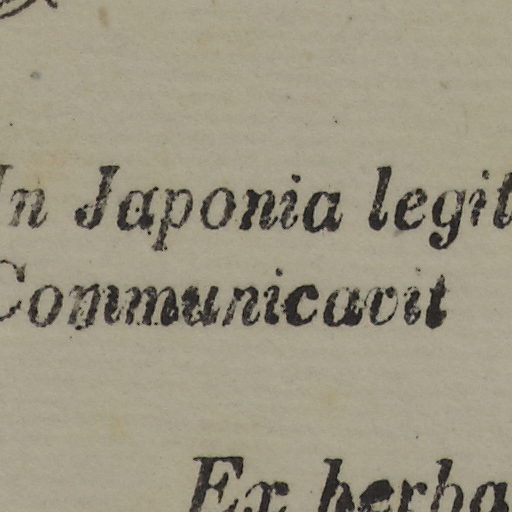 In Japonia legit
Communicavit
Ex herba